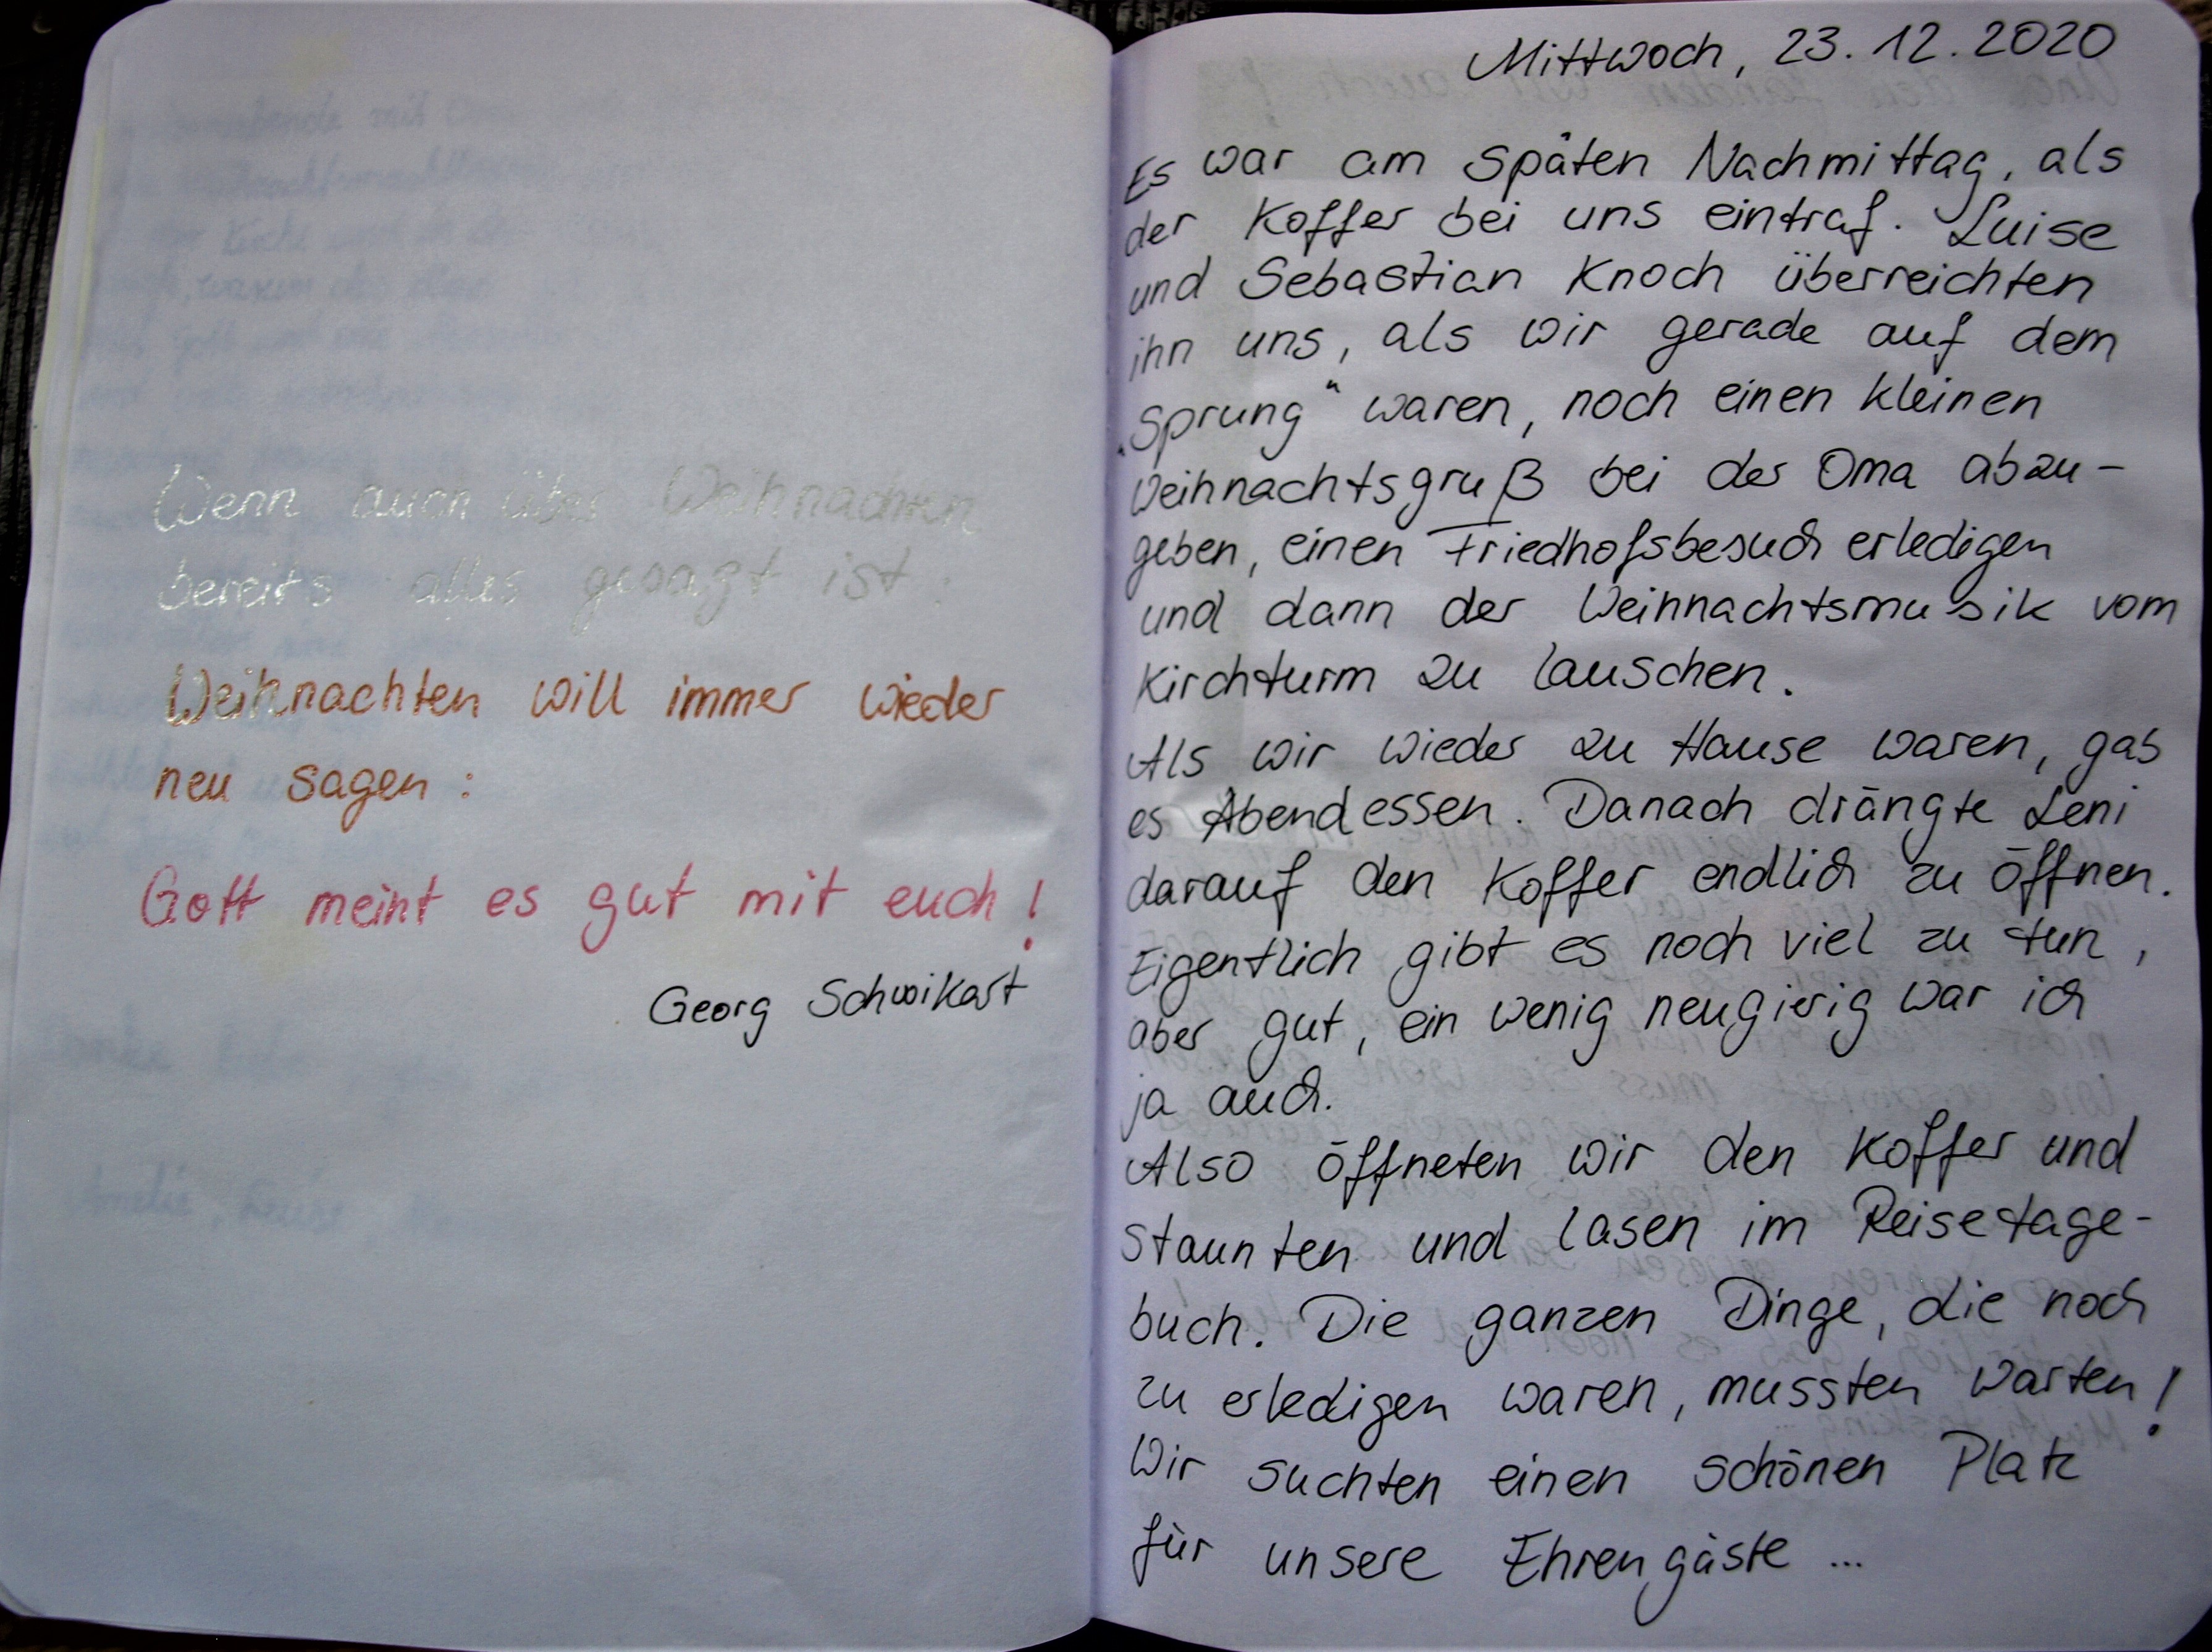 Wenn auch über Weihnachten
bereits alles gesagt ist:
Weihnachten will immer wieder
neu sagen:
Gott meint es gut mit euch!
Georg Schwikart
Mittwoch, 23.12.2020
Es war am späten Nachmittag, als
der Koffer bei uns eintraf. Luise
und Sebastian Knoch überreichten
ihn uns, als wir gerade auf dem
„Sprung“ waren, noch einen kleinen
Weihnachtsgruß bei der Oma abzu-
geben, einen Friedhofsbesuch erledigen
und dann der Weihnachtsmusik vom
Kirchturm zu lauschen.
Als wir wieder zu Hause waren, gab
es Abendessen. Danach drängte Leni
darauf den Koffer endlich zu öffnen.
Eigentlich gibt es noch viel zu tun,
aber gut, ein wenig neugierig war ich
ja auch.
Also öffneten wir den Koffer und
staunten und lasen im Reisetage-
buch. Die ganzen Dinge, die noch
zu erledigen waren, mussten warten!
Wir suchten einen schönen Platz
für unsere Ehrengäste ...